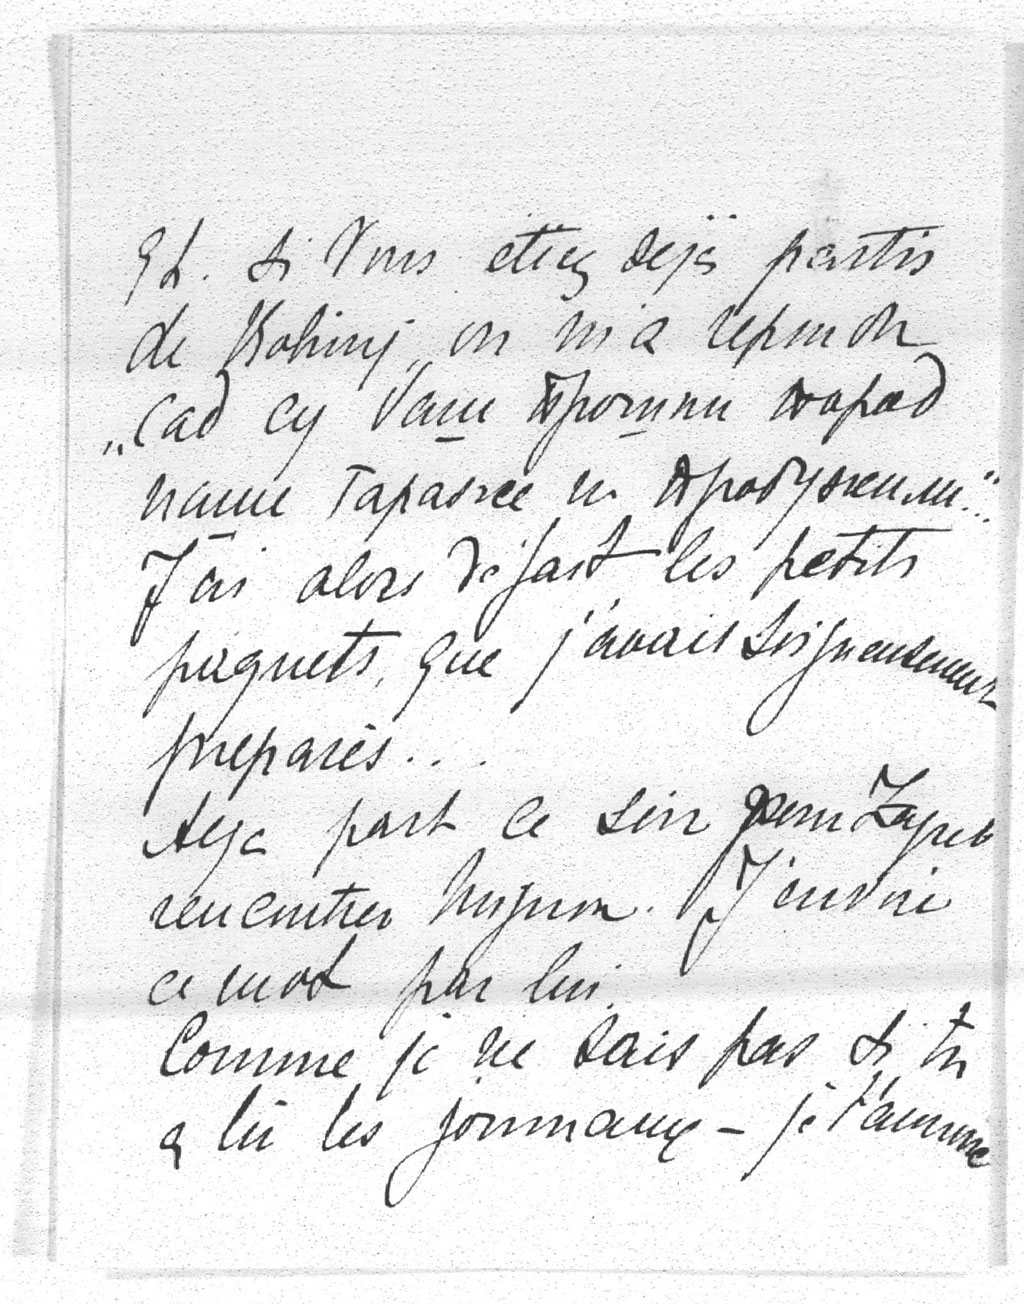 si Vous étiez dejà partis
de Bohinj, on m'a repondu
„сад су Ваши прошли поред
наше гараже и продужили“...
J'ai alors défait les petits
paquets, que j'avais soigneusement
preparés...
part ce soir pour Zagreb
rencontrer Mignon. J'envoie
ce mot par lui.
Comme je ne sais pas si tu
a lu les journaux – je t'annonce